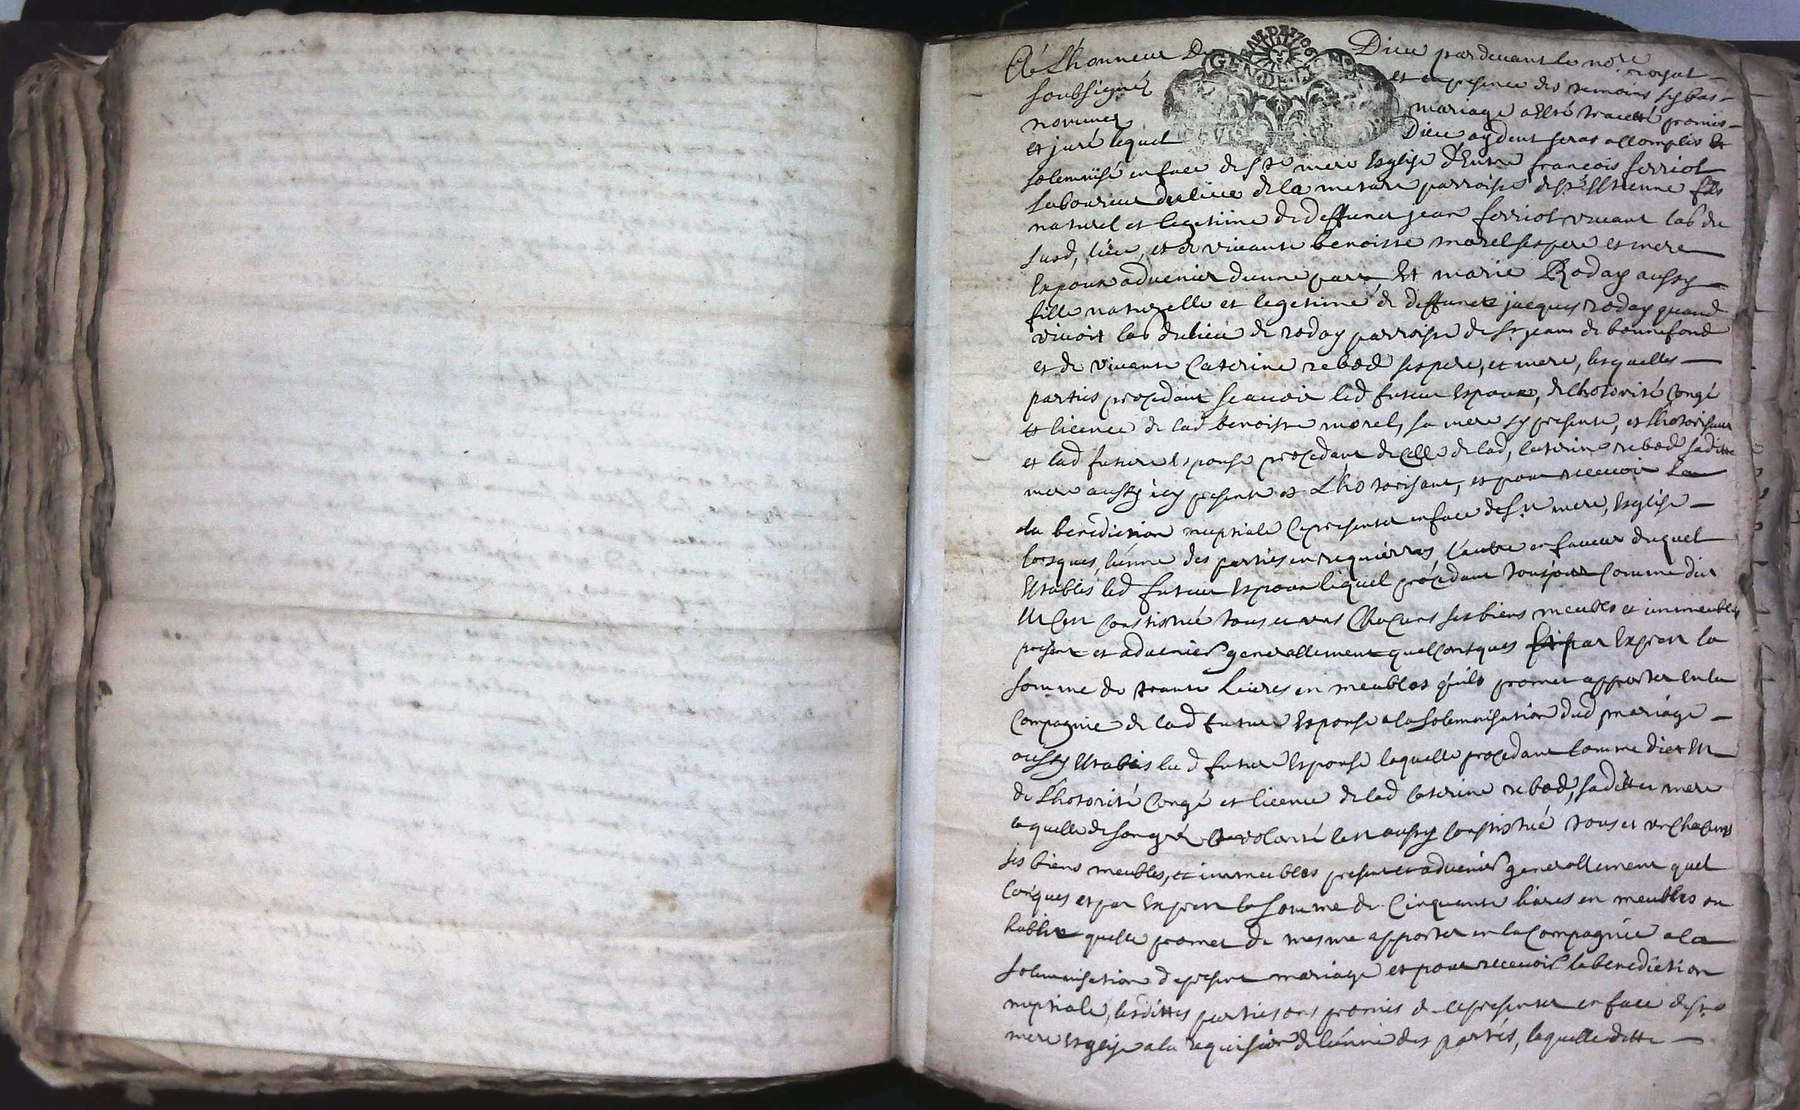 A Lhonneur De Dieu pardevant le no.re royal
GEN DE LION
soubsigné et en presence des temoins sy bas
nommez mariage a esté traicté promis
et juré lequel Dieu aydent seras accomplis et
solemnisé en face de s.te mere Esglise Entre françois ferriol
laboureur du lieu de la parroisse de s.t Estienne fils
naturel et legetime de deffunct jean ferriol vivant lab.r du
susd, lieu, et de vivante benoiste morel ses pere et mere
Expoux advenier d'unne part, Et marie Roday aussy
fille naturelle et legetime de deffunct jacques roday quand
vivoit lab.r du lieu de roday parroisse de s.t jean de bonnefond
et de vivante Caterine rebod ses pere, et mere, lesquelles
parties procedant sçauoir led futeur Espoux, de lhotorité congé
et licence de lad benoiste morel, sa mere sy presente, et lhotorisant
et lad future Espouse procedant de celle de lad, Caterine rebod saditte
mere aussy icy presente et Lhotorisant, et pour recevoir La
da benediction nuptiale ce presenter en face de s.te mere, Esglise
lorsques, l'unne des parties en requierras, l'autre en faveur duquel
Etablis led futeur Espoux lequel procedant toujour comme dit
Est c'est constitué tous et uns chacuns ses biens meubles et immeubles
present et advenier generallement quelconques par Expres la
somme de trante livres en meubles qu'ils promet apporter en la
compagnie de lad future Espouse a la solemnisation dud mariage
aussy Etablis lad future Espouse laquelle procedant comme dict Est
de Lhotorité congé et licence de lad Caterine rebod, saditte mere
laquelle de son gré et volonté c'est aussy constitué tous et uns chacuns
ses biens meubles, et immeubles present et advenier generallement quel
conques et par Expres la somme de cinquante livres en meubles ou
habits quelle promet de mesme apporter en la compagnie a la
solemnisation du present mariage et pour recevoir la benediction
nuptiale, lesdittes parties ont promis de ce presenter en face de s.te
mere Esglise a la requisition de l'unne des partiés, laquelle ditte